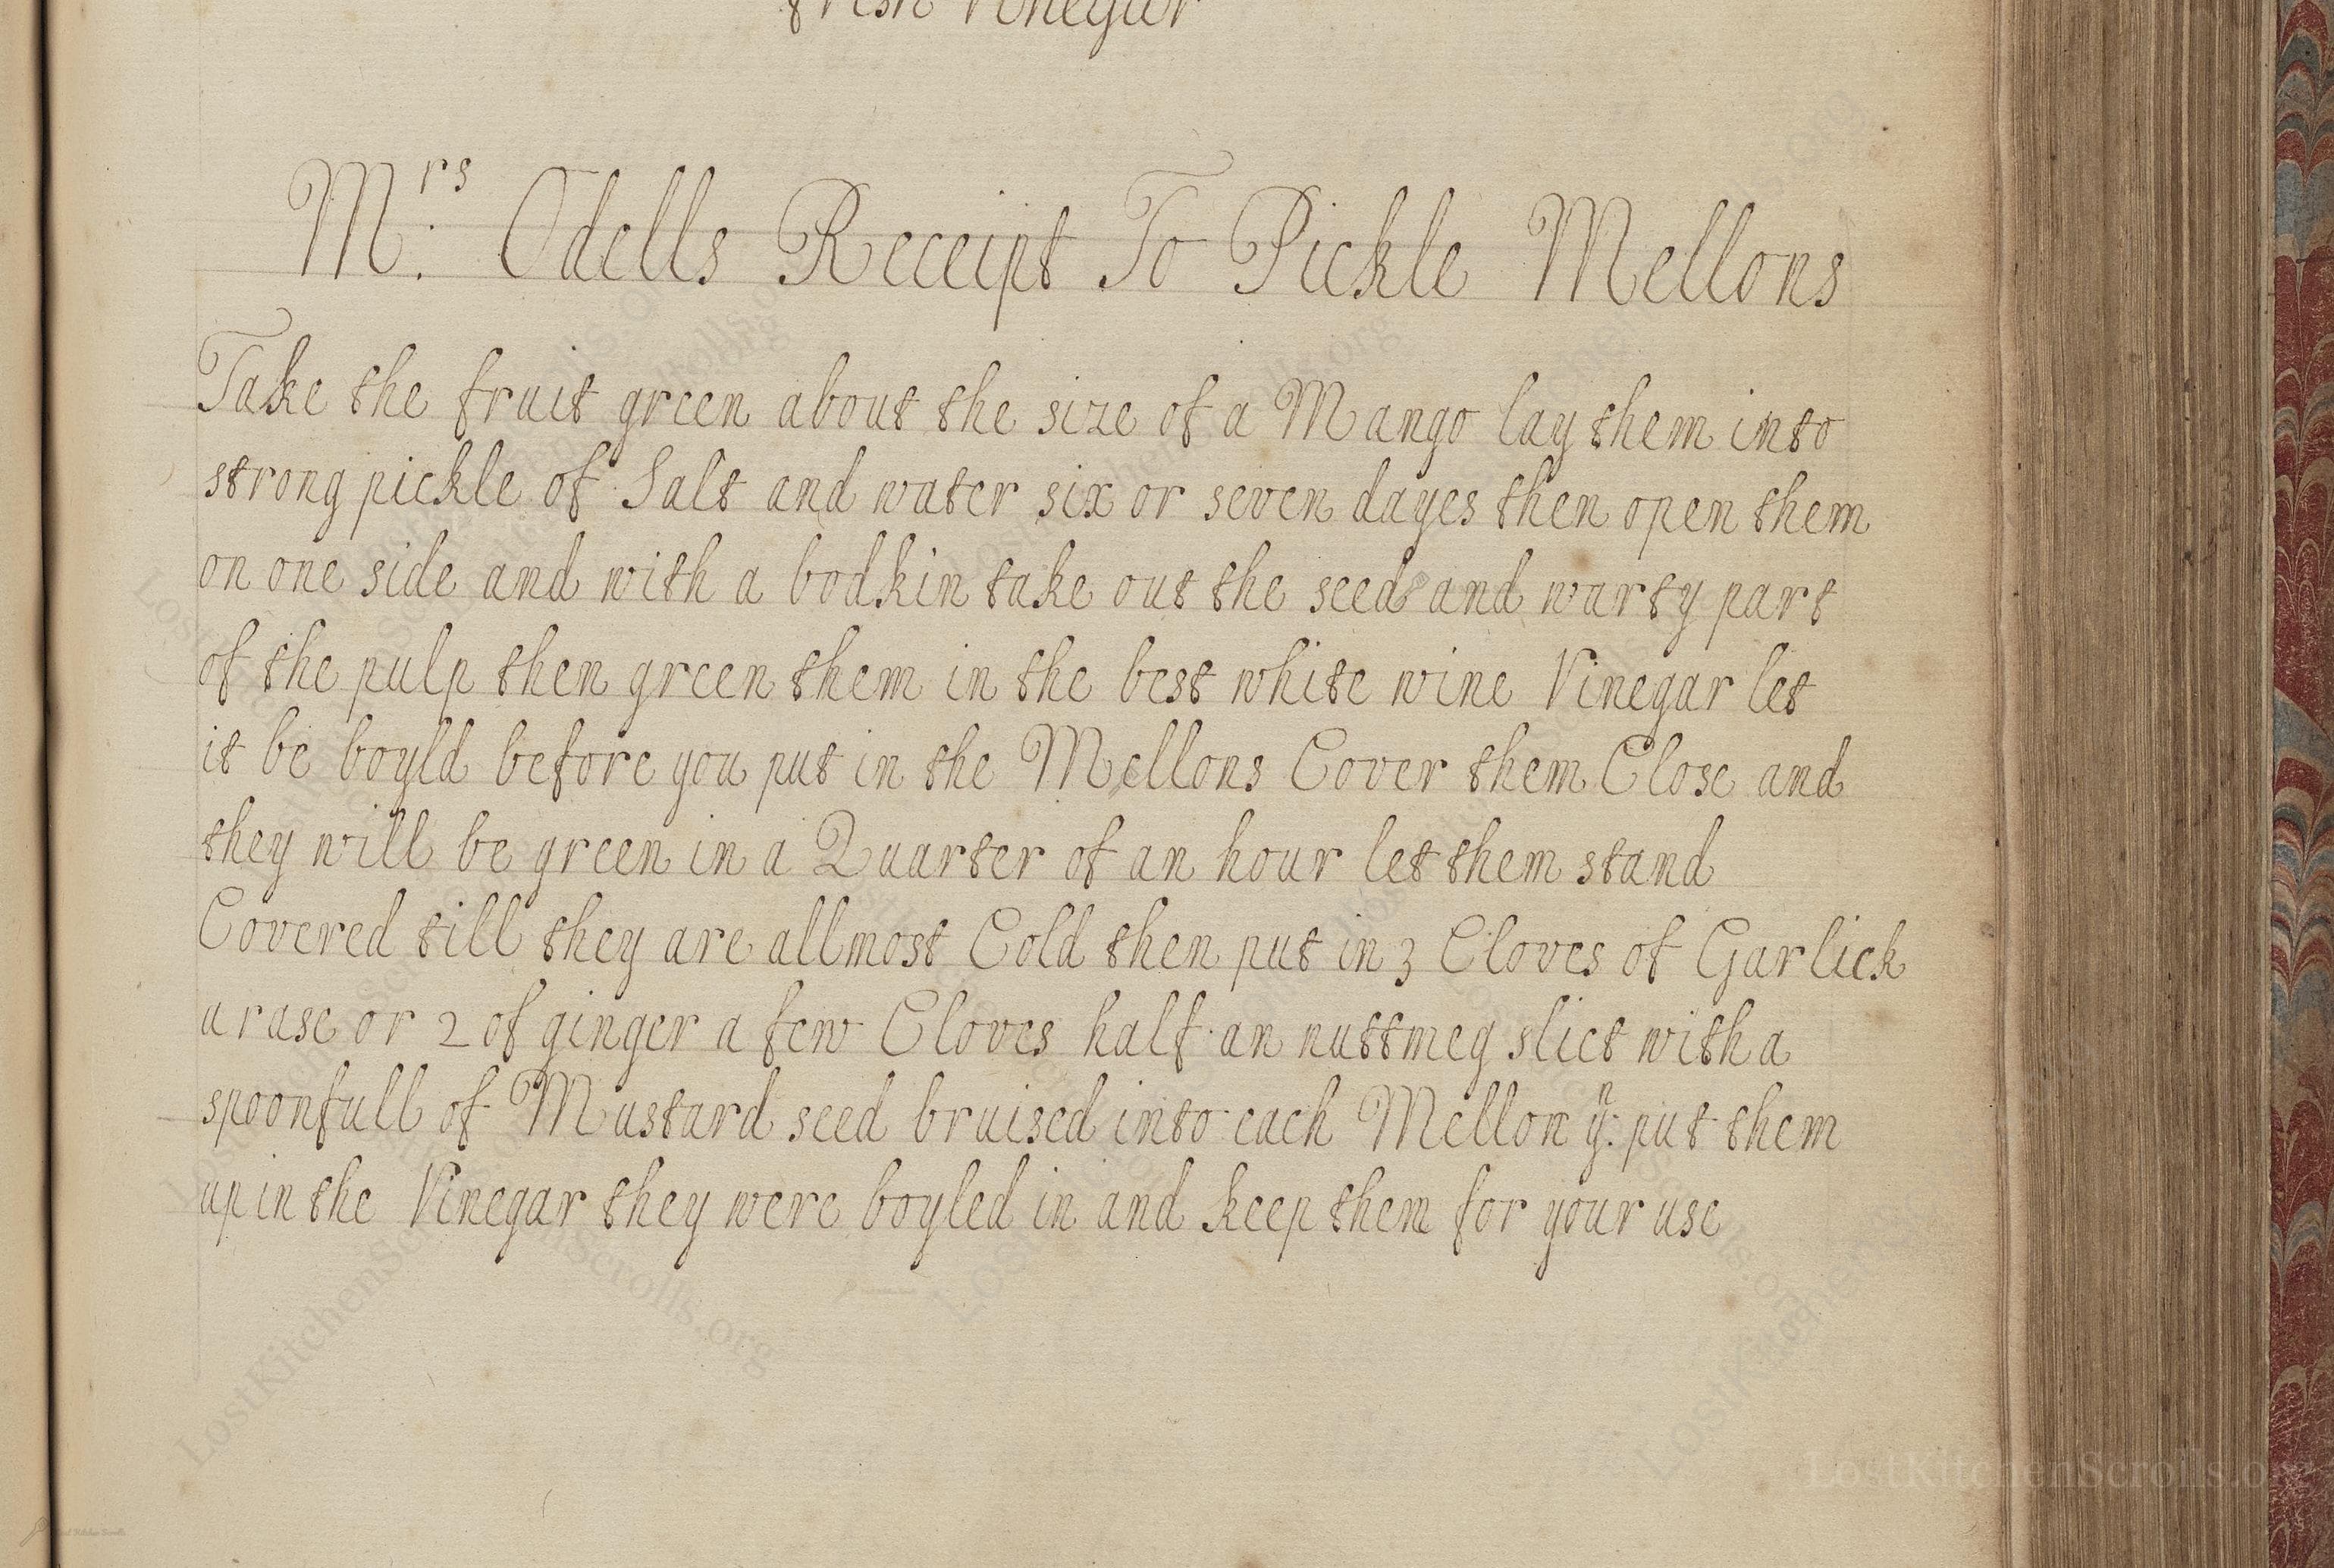 fresh Vinegar
Mrs: Odells Receipt To Pickle Mellons
Take the fruit green about the size of a Mango lay them into
strong pickle of Salt and water six or seven dayes then open them
on one side and with a bodkin take out the seeds and warty part
of the pulp then green them in the best white wine Vinegar let
it be boyld before you put in the Mellons Cover them Close and
they will be green in a Quarter of an hour let them stand
Covered till they are allmost Cold then put in 3 Cloves of Garlick
a rase or 2 of ginger a few Cloves half an nuttmeg slict with a
spoonfull of Mustard seed bruised into each Mellon yn: put them
up in the Vinegar they were boyled in and keep them for your use
LostKitchenScrolls.org